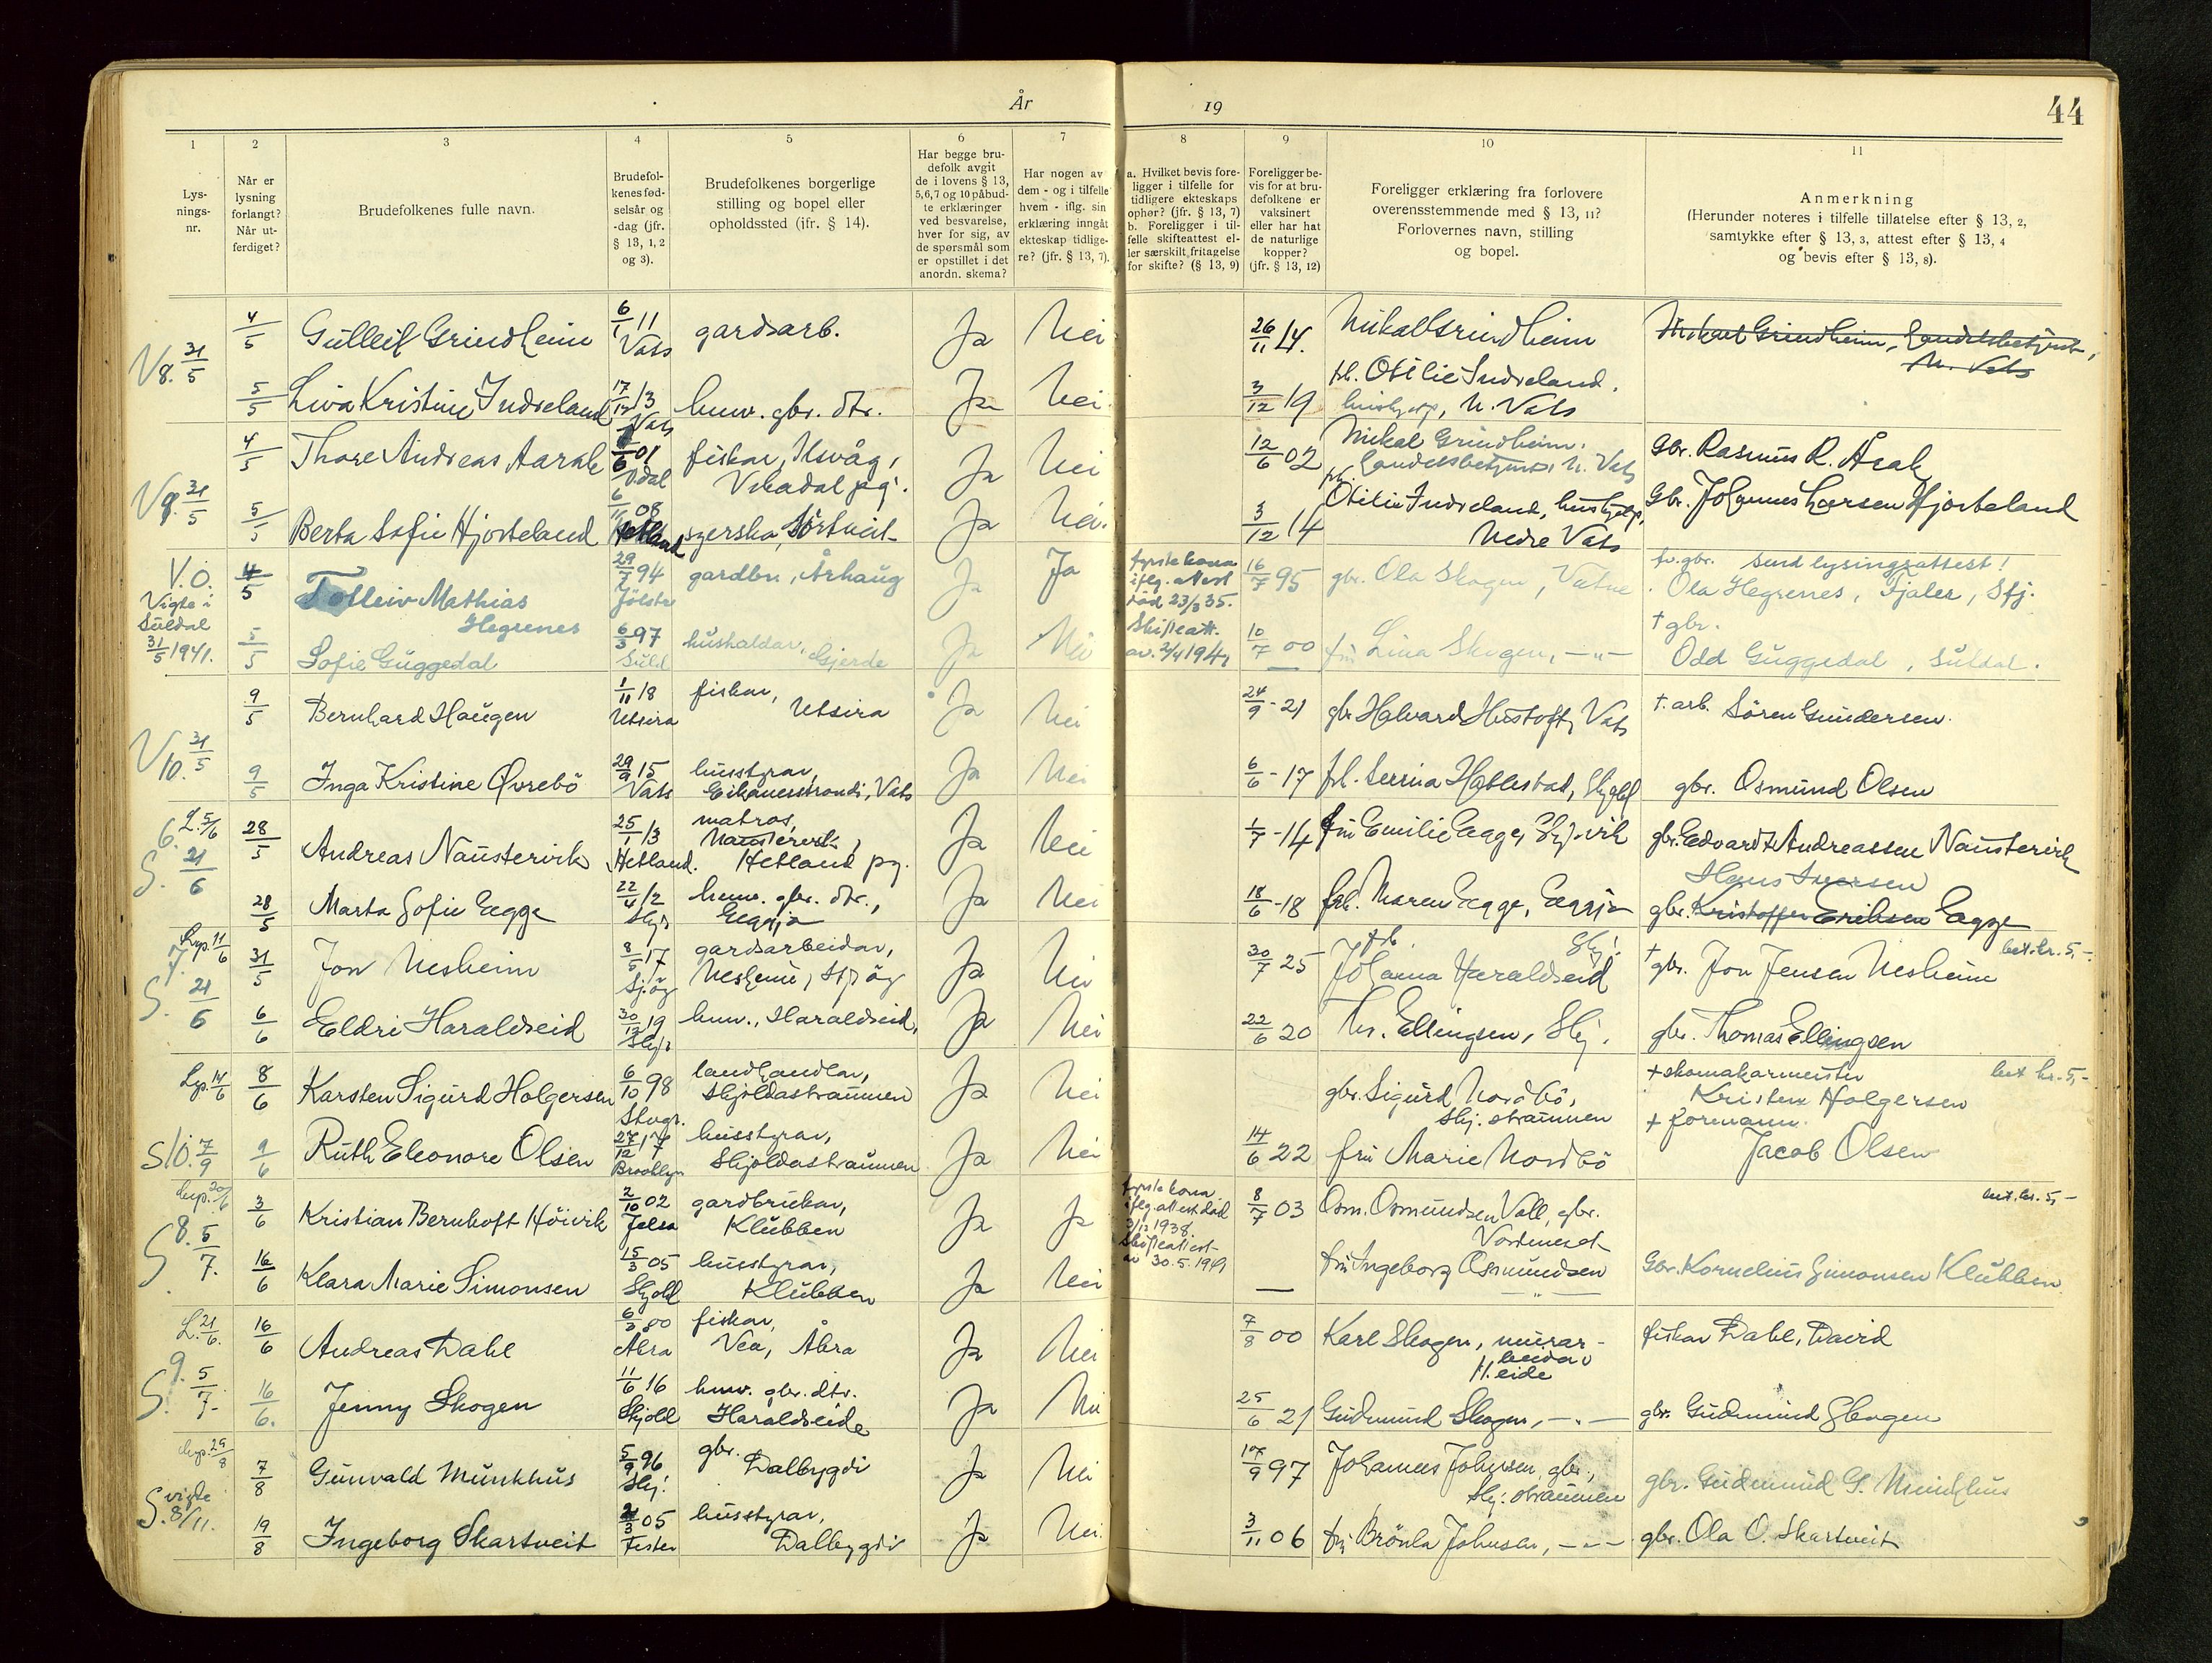 År 19
44
1
Lys-
nings-
nr.
2
Når er
lysning
forlangt?
Når ut-
ferdiget?
3
Brudefolkenes fulle navn.
4
Brudefol-
kenes fød-
selsår og
-dag (jfr.
§ 13, 1, 2
og 3).
5
Brudefolkenes borgerlige
stilling og bopel eller
opholdssted (jfr. § 14).
6
Har begge bru-
defolk avgit
de i lovens § 13,
5,6,7 og 10 påbud-
te erklæringer
ved besvarelse,
hver for sig, av
de spørsmål som
er opstillet i det
anordn. skema?
7
Har nogen av
dem - og i tilfelle
hvem - iflg. sin
erklæring inngåt
ekteskap tidlige-
re? (jfr. § 13, 7).
8
a. Hvilket bevis fore-
ligger i tilfelle for
tidligere ekteskaps
ophør? (jfr. § 13, 7)
b. Foreligger i til-
felle skifteattest el-
ler særskilt fritagelse
for skifte? (§ 13, 9)
9
Foreligger be-
vis for at bru-
defolkene er
vaksinert
eller har hat
de naturlige
kopper?
(jfr. § 13, 12)
10
Foreligger erklæring fra forlovere
overensstemmende med § 13, 11?
Forlovernes navn, stilling
og bopel.
11
Anmerkning
(Herunder noteres i tilfelle tillatelse efter § 13, 2,
samtykke efter § 13, 3, attest efter § 13, 4
og bevis efter § 13, 8).
V8. 31/5 4/5 Gulleif Grindheim 6/1 11 Vats gardsarb. Ja Nei 26/11 14. Mikal Grindheim Mikal Grindheim, landbetjent, N. Vats
5/5 Liva Kristine Indreland 17/12 13 Vats heimv. gbr. dtr. Ja Nei 3/12 19 frk. Otilie Indreland, hushjelp, N. Vats
V9. 31/5 4/5 Thore Andreas Aarak 6 01 V.dal fiskar, Ilsvåg, Vikadal pg. Ja Nei 12/6 02 Mikal Grindheim, N. Vats Gbr. Rasmus R. Årak
5/5 Berta Sofie Hjorteland 6/11 08 syerska, Sörtveit Ja Nei. 3/12 14 frk. Otilie Indreland, hushjelp, Nedre Vats Gbr. Johannes Larsen Hjorteland
V.O. Vigte i Suldal 31/5 1941. 4/5 Tolleiv Mathias Hegrenes 29/7 94 Jölster gardbr., Århaug Ja Ja fyrste kona iflg. attest död 23/3 35. Skifteatt. av. 2/4 1941 16/7 95 gbr. Ola Skogen, Vatne fv. gbr. Send lysingsattest! Ola Hegrenes, Fjaler, Sfj.
5/5 Sofie Guggedal 6/3 97 Suld husholdar, Gjerde Ja Nei 10/7 00 fru Lina Skogen, -"- † gbr. Odd Guggedal, Suldal.
V10. 31/5 9/5 Bernhard Haugen 1/11 18 Utsira fiskar, Utsira Ja Nei 24/9 - 21 gbr. Halvard Hustoft, Vats †. arb. Sören Gundersen.
9/5 Inga Kristine Øvrebö 29/9 15 Vats husstyrar, Eikanesstrondi, Vats Ja Nei 6/6 - 17 frk. Serina Hatlestad, Skjold gbr. Osmund Olsen
6. L. 5/6 S. 21/6 28/5 Andreas Naustervik 25/1 13 Hetland. matros, Naustervik, Hetland pg. Ja Nei 1/7 - 14 fru Emilie Egge, Skj.vik gbr. Edvard Andreassen Naustervik
28/5 Marta Sofie Egge 22/4 12 Skj. heimv. gbr. dtr., Eggja Ja Nei 18/6 - 18 frk. Maren Egge, Eggja Hans Iversen gbr. Kristoffer Eriksen Egge
Lys. 11/6 7. S. 21/6 31/5 Jon Nesheim 8/5 17 gardsarbeidar, Nesheim, Ja Nei 30/7 25 frk. Johanna Haraldseid Skj. † gbr. Jon Jensen Nesheim bet. kr. 5,-
6/6 Eldri Haraldseid 30/12 19 Skj. heimv., Haraldseid, Ja Nei 22/6 20 Th. Ellingsen, Skj. gbr. Thomas Ellingsen
Lys. 14/6 8/6 Karsten Sigurd Holgersen 6/10 98 Stvgr. landhandlar, Skjoldastraumen Ja Nei gbr. Sigurd Nordbö, Skj. straumen + skomakarmeister Kristen Holgersen bet kr. 5,-
S 10. 7/9 9/6 Ruth Eleonore Olsen 27/12 17 Brooklyn husstyrar, Skjoldastraumen Ja Nei 14/6 22 fru Marie Nordbö + formann. Jacob Olsen
Lys. 20/6 8. S 5/7. 3/6 Kristian Bernhoft Höivik 2/10 02 Jelsa gardbrukar, Klubben Ja Ja fyrste kona iflg. attest död 3/12 1938. Skifteattest av 30.5.1941 8/7 03 Osm. Osmundsen Vall, gbr. bet. kr. 5,-
16/6 Klara Marie Simonsen 15/3 05 Skjold husstyrar, Klubben Ja Nei fru Ingeborg Osmundsen -"- Gbr. Kornelius Simonsen Klubben
L. 21/6. 9. S. 5/7. 16/6 Andreas Dahl 00 Åkra fiskar, Vea, Åkra Ja Nei 7/8 00 Karl Skogen, murar - H.eide fiskar Dahl, David
16/6. Jenny Skogen 11/6 16 Skjold heimv. gbr. dtr. Haraldseide Ja Nei 25/6 21 Gudmund Skogen, -"- gbr. Gudmund Skogen
Lys. 29/8 S. vigde 8/11. 7/8 Gunvald Munkhus 5/9 96 Skj. gbr. Dalbygdi Ja Nei 17/9 97 Johannes Johnsen, gbr., Skj. straumen gbr. Gudmund G. Munkhus
19/8 Ingeborg Skartveit 21/3 05 Fister husstyrar, Dalbygdi Ja Nei. 3/11 06 fru Brönla Johnsen, -"- gbr. Ola O. Skartveit